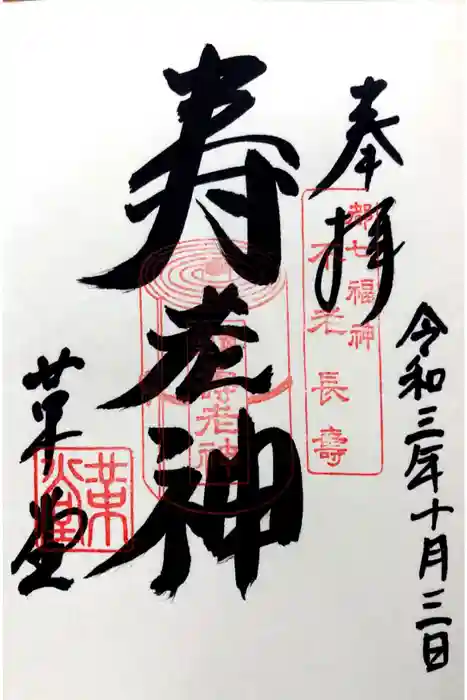 奉拝
都七福神
不老長壽
令和三年十月三日
寿老神
寿老神
革堂
革堂